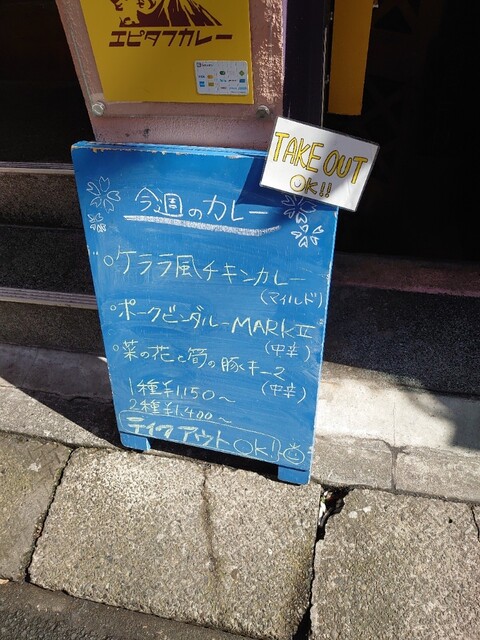 エピタフカレー
TAKE OUT
OK!!
今週のカレー
○ケララ風チキンカレー
(マイルド)
○ポークビンダルーMARKⅡ
(中辛)
○菜の花と筍の豚キーマ
(中辛)
1種¥1,150～
2種¥1,400～
テイクアウトOK!